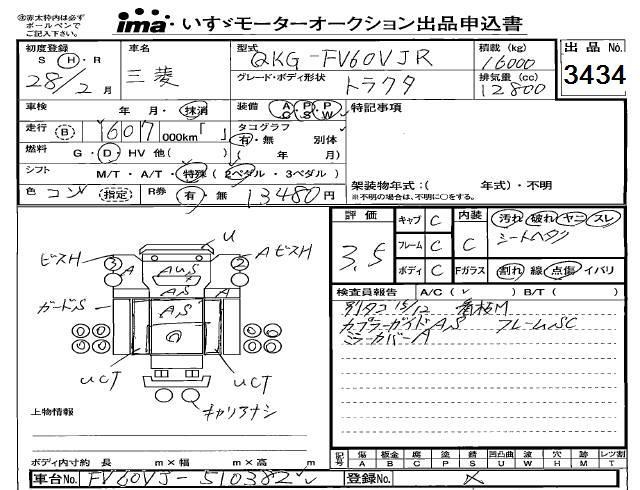 ㊟赤太枠内は必ず
ボールペンで
ご記入下さい。
ima いすゞモーターオークション出品申込書
初度登録 車名 型式 積載 (kg) 出品No.
S・H・R 三菱 QKG-FV60VJR 16000
28/2月 グレード・ボディ形状 トラクタ 排気量 (cc) 12800 3434
車検 年 月・抹消 装備 AC PS PW 特記事項
走行 B 1607 000km「 」 タコグラフ
有・無 別体
燃料 G・D・HV 他( ) ( 年 月)
シフト M/T・A/T・特殊 (2ペダル・3ペダル) 架装物年式:( 年式)・不明
※不明の場合は、不明に○をする。
色 コン 指定 R券 有・無 13480円
評価 キャブ C 内装 汚れ 破れ ヤニ スレ
3.5 フレーム C C シートヘタリ
ボディ C Fガラス 割れ 線 点傷 イバリ
U
ビスH 3 A AUS 2 AビスH
AS A
ガードS AS
UCT UCT
キャリアナシ
検査員報告 A/C( ✓ ) B/T( )
別タコ 15/12 看板M
カプラーガイドAS フレームSC
ミラーカバーA
上物情報
ボディ内寸約 長 m×幅 m×高 m
記号 傷 板金 腐 塗 錆 凹凸曲 波 穴 跡 レツ割
A B C P S U W H M T
車台No. FV60VJ-510382 登録No.